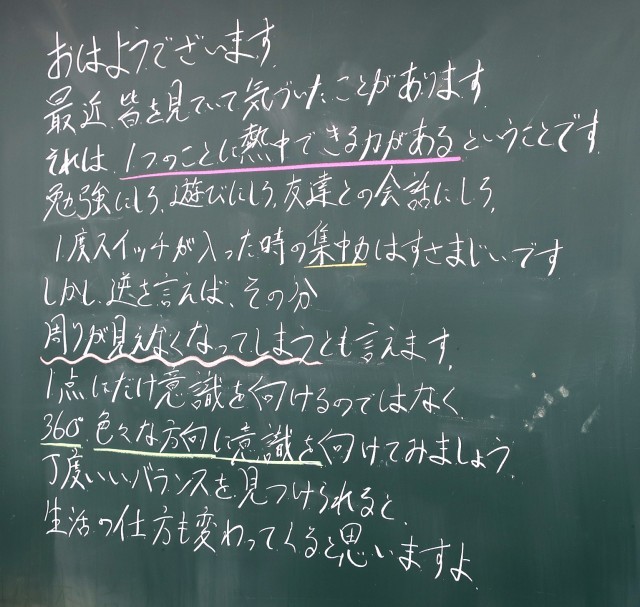 おはようございます。
最近、皆を見ていて気づいたことがあります。
それは、1つのことに熱中できる力があるということです。
勉強にしろ、遊びにしろ、友達との会話にしろ、
1度スイッチが入った時の集中力はすさまじいです
しかし、逆を言えば、その分
周りが見えなくなってしまうとも言えます。
1点にだけ意識を向けるのではなく、
360°色々な方向に意識を向けてみましょう。
丁度いいバランスを見つけられると、
生活の仕方も変わってくると思いますよ。